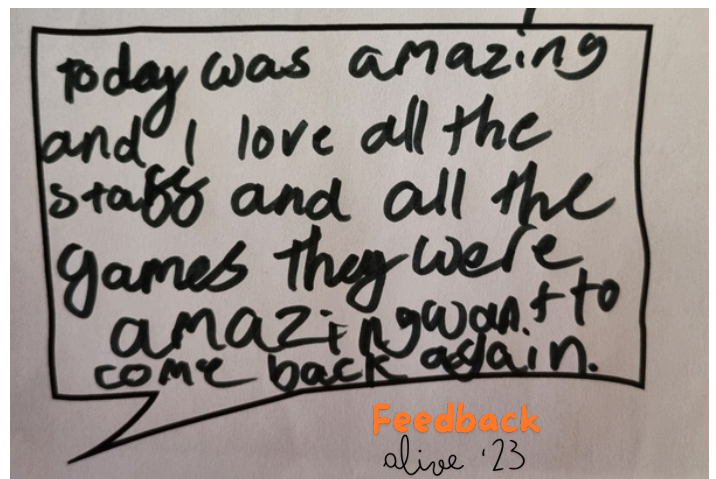 today was amazing
and I love all the
staff and all the
games they were
amazing want to
come back again.
Feedback
alive '23